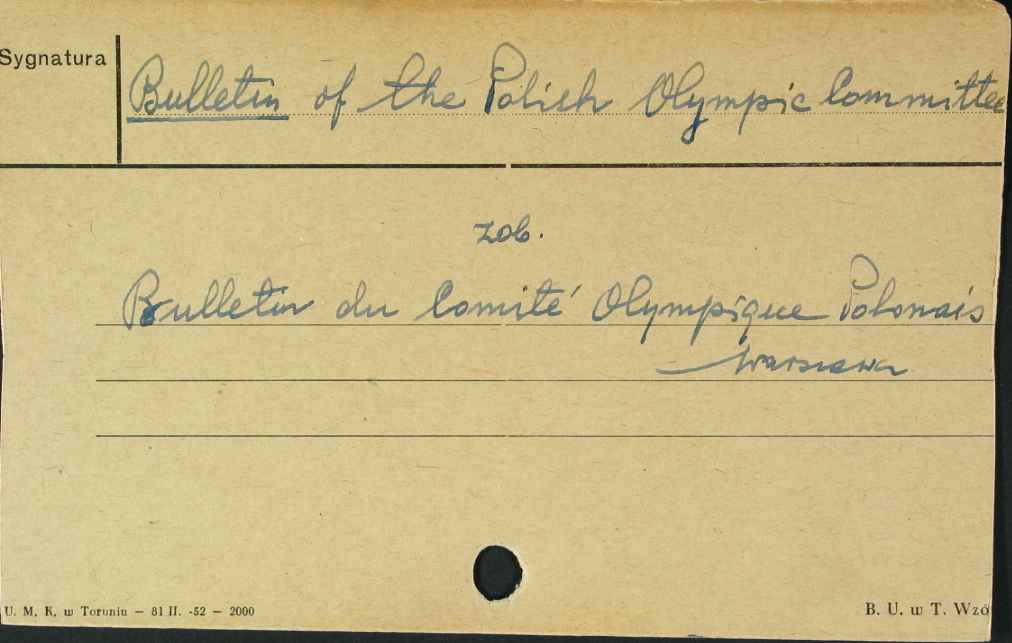 Sygnatura
Bulletin of the Polish Olympic Committee
zob.
Bulletin du Comité Olympique Polonais
Warszawa
U. M. K. w Toruniu — 81 II. -52 — 2000
B. U. w T. Wzó